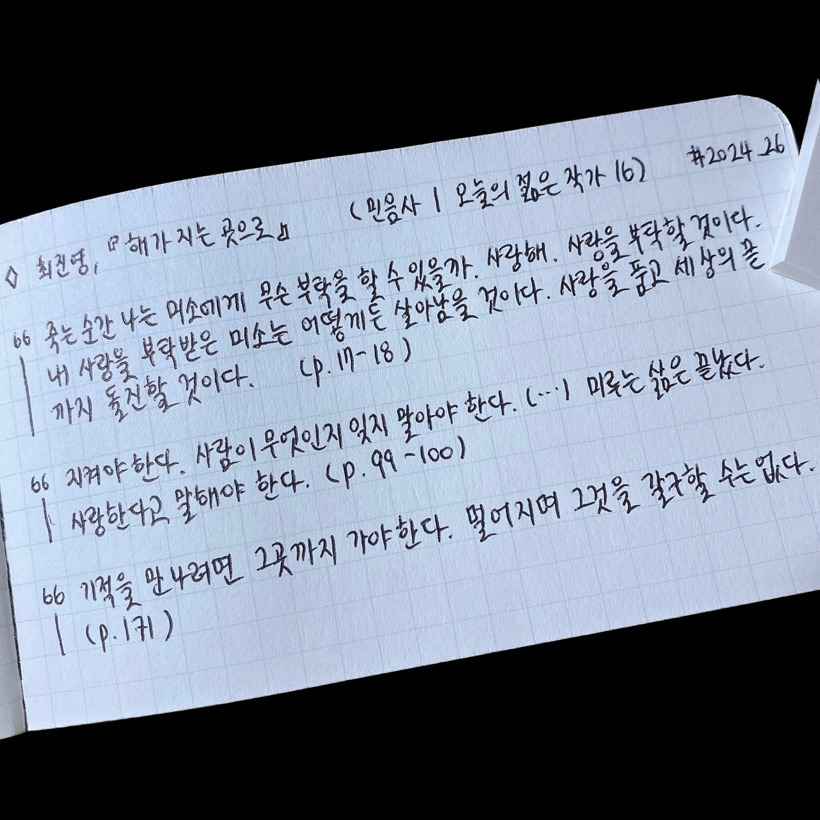 #2024_26
◇ 최진영, 『해가 지는 곳으로』 (민음사 | 오늘의 젊은 작가 16)
66 죽는 순간 나는 미소에게 무슨 부탁을 할 수 있을까. 사랑해. 사랑을 부탁할 것이다.
내 사랑을 부탁받은 미소는 어떻게든 살아남을 것이다. 사랑을 품고 세상의 끝
까지 돌진할 것이다. (p.17-18)
66 지켜야 한다. 사람이 무엇인지 잊지 말아야 한다. (…) 미루는 삶은 끝났다.
사랑한다고 말해야 한다. (p.99-100)
66 기적을 만나려면 그곳까지 가야 한다. 멀어지며 그것을 갈구할 수는 없다.
(p.171)